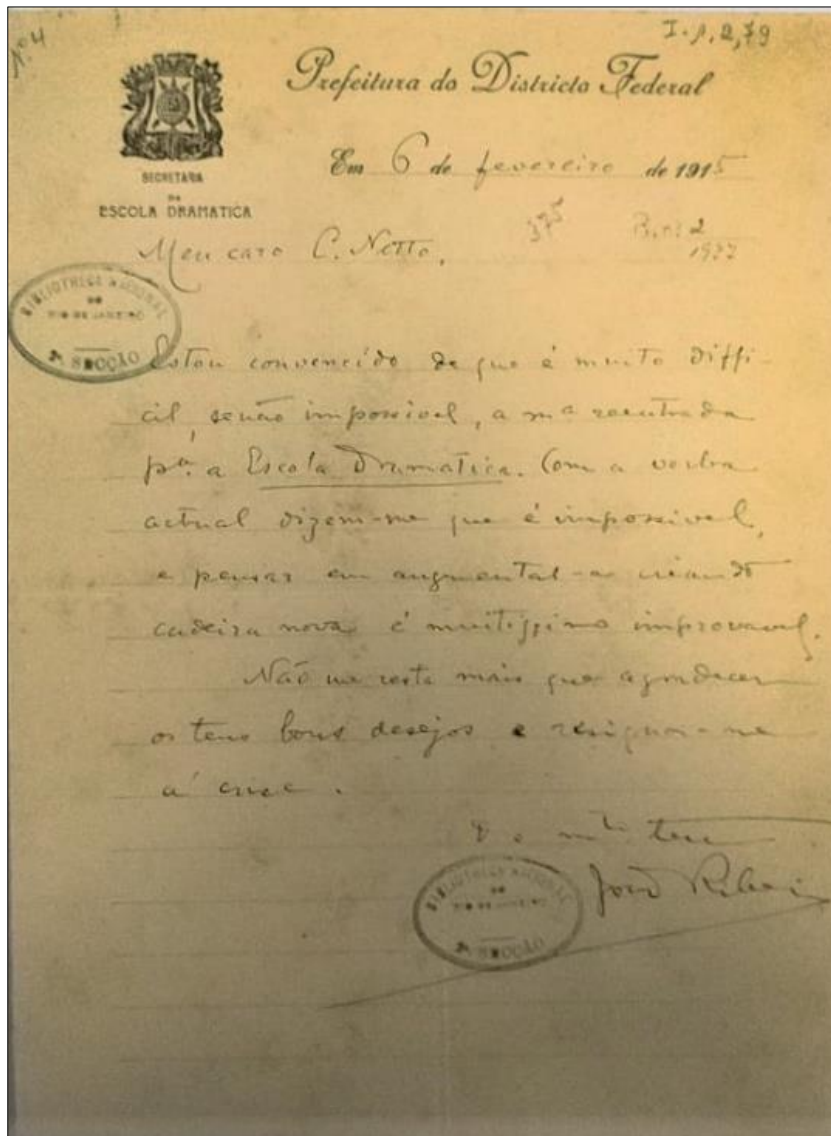 Nº 4
I-1,2,79
Prefeitura do Districto Federal
SECRETARIA
DA
ESCOLA DRAMATICA
Em 6 de fevereiro de 1915
375
2
Meu caro C. Netto,
BIBLIOTHECA NACIONAL
DO
RIO DE JANEIRO
SECÇÃO
Estou convencido de que é muito diffi-
cil, senão impossivel, a mª reentrada
pª. a Escola Dramatica. Com a verba
actual dizem-me que é impossivel,
e pensar em augmental-a creando
cadeira nova é muitissimo improvavel.
Não me resta mais que agradecer
os teus bons desejos e resignar-me
á crise.
mto teu
João Ribeiro
BIBLIOTHECA NACIONAL
DO
RIO DE JANEIRO
SECÇÃO